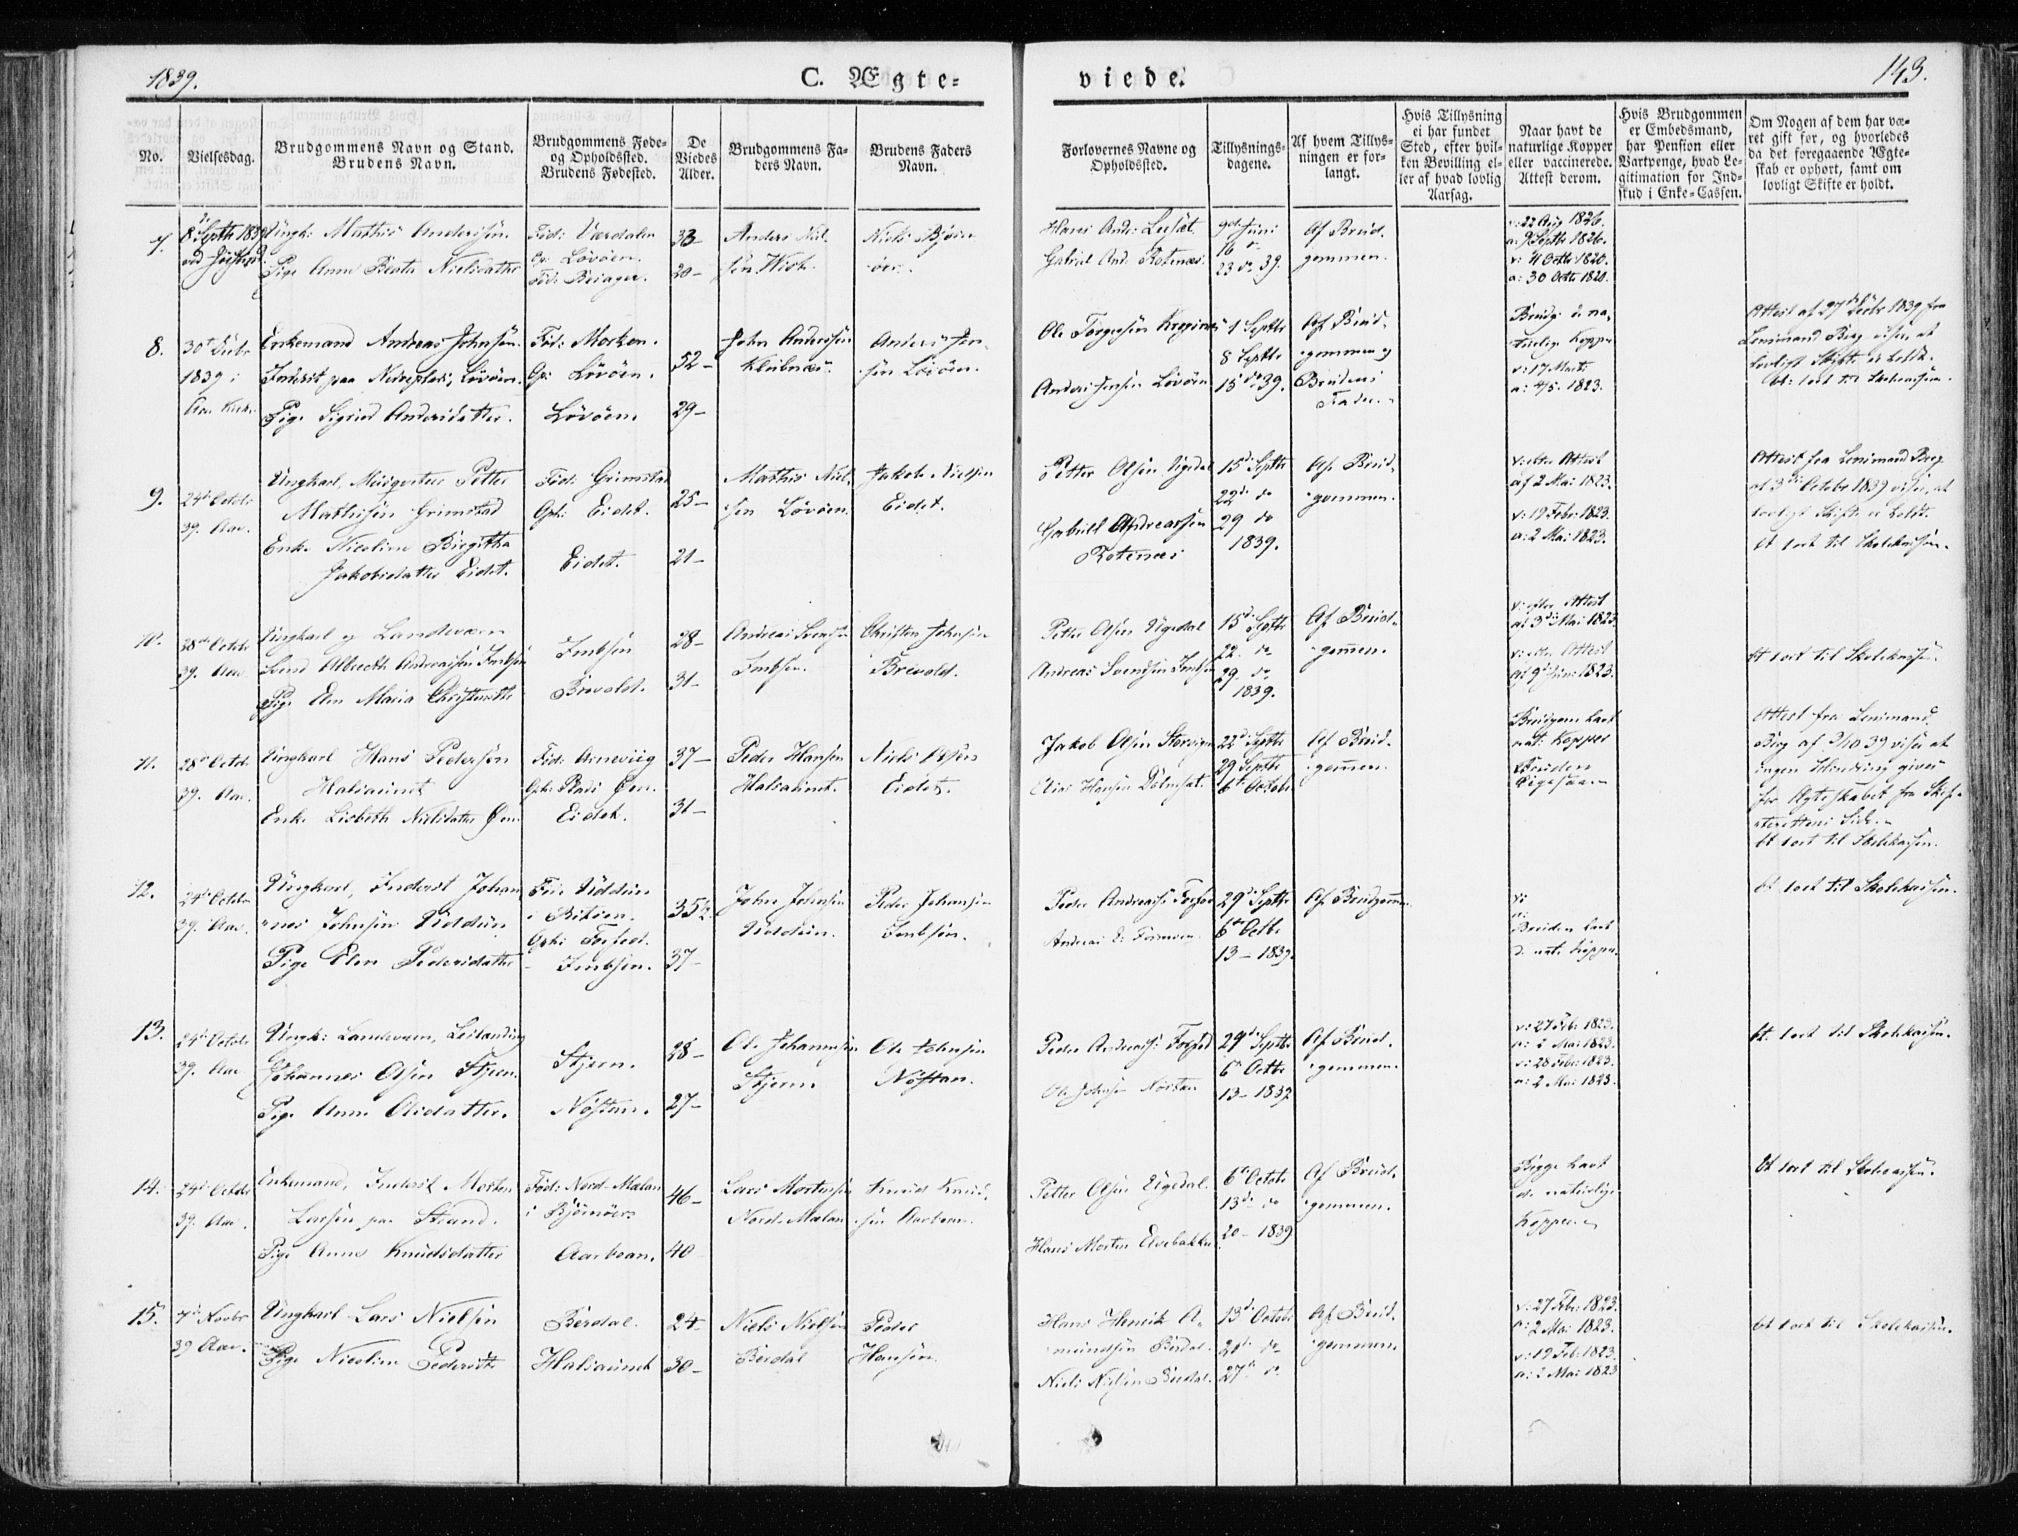 1839.
C. Ægte-
viede.
143.
No.
Vielsesdag.
Brudgommens Navn og Stand.
Brudens Navn.
Brudgommens Føde-
og Opholdssted.
Brudens Fødested.
De
Viedes
Alder.
Brudgommens Fa-
ders Navn.
Brudens Faders
Navn.
Forlovernes Navne og
Opholdssted.
Tillysnings-
dagene.
Af hvem Tillys-
ningen er for-
langt.
Hvis Tillysning
ei har fundet
Sted, efter hvil-
ken Bevilling el-
ler af hvad lovlig
Aarsag.
Naar havt de
naturlige Kopper
eller vaccinerede.
Attest derom.
Hvis Brudgommen
er Embedsmand,
har Pension eller
Vartpenge, hvad Le-
gitimation for Ind-
skud i Enke-Cassen.
Om Nogen af dem har væ-
ret gift før, og hvorledes
da det foregaaende Ægte-
skab er ophørt, samt om
lovligt Skifte er holdt.
7.
8 Septbr 1839
Ungk: Mathis Andersen
Pige Anne Beata Nielsdatter
Fød: Værdalen
Op: Løvøen.
33-
20-
Anders Niel-
sen
Niels Bjørn-
øer.
Hans And:
Gabriel And. Rotenæs.
9de Juni
16 d.
23 do 39.
Af Brud-
gommen.
v: 22 Aug 1826.
a: 9 Septbr 1826.
v: 4 Octbr 1820.
a: 30 Octbr 1820.
8.
1839 i
Enkemand Andreas Johnsen.
Inderst paa Løvøen.
Pige Sigrid Andersdatter.
Fød: Morken.
Op: Løvøen.
Løvøen.
52-
29-
John Andersen
Anders Jen-
sen Løvøen.
Ole Torgersen
Anders Jensen Løvøen
1 Septbr
8 Septbr
15 do 39.
Af Brud-
gommen og
Brudens
Fader.
Brudg: de na-
turlige Kopper
v: 17 Marts
a: 4/5. 1823.
Attest af 27de Septbr 1839 fra
Lensmand Berg viser, at
lovligt Skifte er holdt.
bt: 1 ort til Skolekassen.
9.
24de Octobr
39. Aae.
Ungkarl, Musqveteer Petter
Mathisen Grimstad
Enke Nicoline Birgitha
Jakobsdatter Eidet.
Fød: Grimstad
Oph: Eidet.
Eidet.
25-
21-
Mathis Niel-
sen Løvøen.
Jakob Nielsen
Eidet.
Petter Olsen Ugedal
Gabriel Andreassen
Rotenæs
15de Septbr
22de do
29 do
1839.
Af Brud-
gommen.
v: efter Attest
af 2 Mai 1823.
v: 19 Febr: 1823.
a: 2 Mai 1823.
Attest fra Lensmand Berg
af 3die Octobr 1839 viser, at
lovligt Skifte er holdt.
bt 1 ort til Skolekassen.
10.
28de Octobr
39. Aae.
Ungkarl og Landeværn
Svend Albrecth Andreassen Imbsen
Pige Elen Maria Christensdtr
Imbsen
Brevold.
28-
31-
Andreas Svendsen
Imbsen.
Christen Johnsen
Brevold.
Petter Olsen Ugedal
Andreas Svendsen Imbsen
15de Septbr
22. do
29. do
1839.
Af Brud-
gommen.
v: efter Attest
af 3die Mai 1823
v: efter Attest
af 9de Juni 1823.
bt 1 ort til Skolekassen.
11.
28de Octobr
39. Aae.
Ungkarl Hans Pedersen
Halsaunet
Enke Lisbeth Nielsdatter Øen
Fød: Arneviig
Oph: Plads Øen.
Eidet.
37-
31-
Peder Hansen
Halsaunet.
Niels Olsen
Eidet.
Jakob Olsen
Elias Hansen
22de Septbr
29 Septbr
6te Octobr
Af Brud-
gommen.
Brudgom: havt
nat: Kopper
Bruden
ligesaa.
Attest fra Lensmand
Berg af 3/10 39 viser at
ingen Hindring gives
for Ægteskabet fra Skif-
terettens Side.
bt 1 ort til Skolekassen.
12.
24de Octobr
39. Aae.
Ungkarl, Inderst Johan-
nes Johnsen Udduun
Pige Elen Pedersdatter
Fød: Uddúun
i Ritsen.
Oph: Fosfed.
Imbsen.
35 1/2
37-
John Johnsen
Uddúun.
Peder Johnsen
Imbsen.
Peder Andreass: Fosfed
29de Septbr
6te Octbr
13- 1839.
Af Brudgom:
v:
a:
Bruden havt
d. nat. Kopper.
bt 1 ort til Skolekassen.
13.
24de Octobr
39. Aae.
Ungk: Landeværn, Leilænding
Johannes Olsen Stjern.
Pige Anne Olsdatter.
Stjern.
Nøstan.
28-
27-
Ole Johannesen
Stjern
Ole Johnsen
Nøstan.
Peder Andreas: Fosfed
Ole Johnsen Nøstan
29de Septbr
6te Octbr
13- 1839
Af Brud-
gommen.
v: 27 Feb: 1823.
a: 2 Mai 1823.
v: 28 Febr: 1823.
a: 2 Mai 1823.
bt. 1 ort til Skolekassen.
14.
24de Octobr
39. Aae.
Enkemand, Inderst Morten
Larsen paa Strand.
Pige Anne Knudsdatter
Fød: Nord-Malan
i Bjørnøer.
Aarboan.
46-
40-
Lars Mortensen
Nord-Malan
Knud Knud-
sen Aarboan.
Petter Olsen Ugedal.
Hans Morten Elvebakken
6te Octobr
13de do
20- 1839
Af Brud-
gommen.
Begge havt
de naturlige
Kopper.
bt 1 ort til Skolekassen.
15.
7de Novbr
39 Aae.
Ungkarl Lars Nielsen
Pige Nicoline Pedersdtr
Berdal.
Halsaunet
24-
30-
Niels Nielsen
Berdal
Peder
Hansen
Hans Henrik A-
mundsen Berdal.
Niels Nielsen Berdal.
13de Octobr
20de do
27de do
Af Brud-
gommen.
v: 27 Febr: 1823.
a: 2 Mai 1823.
v: 19 Feb: 1823.
a: 2 Mai 1823
bt 1 ort til Skolekassen.